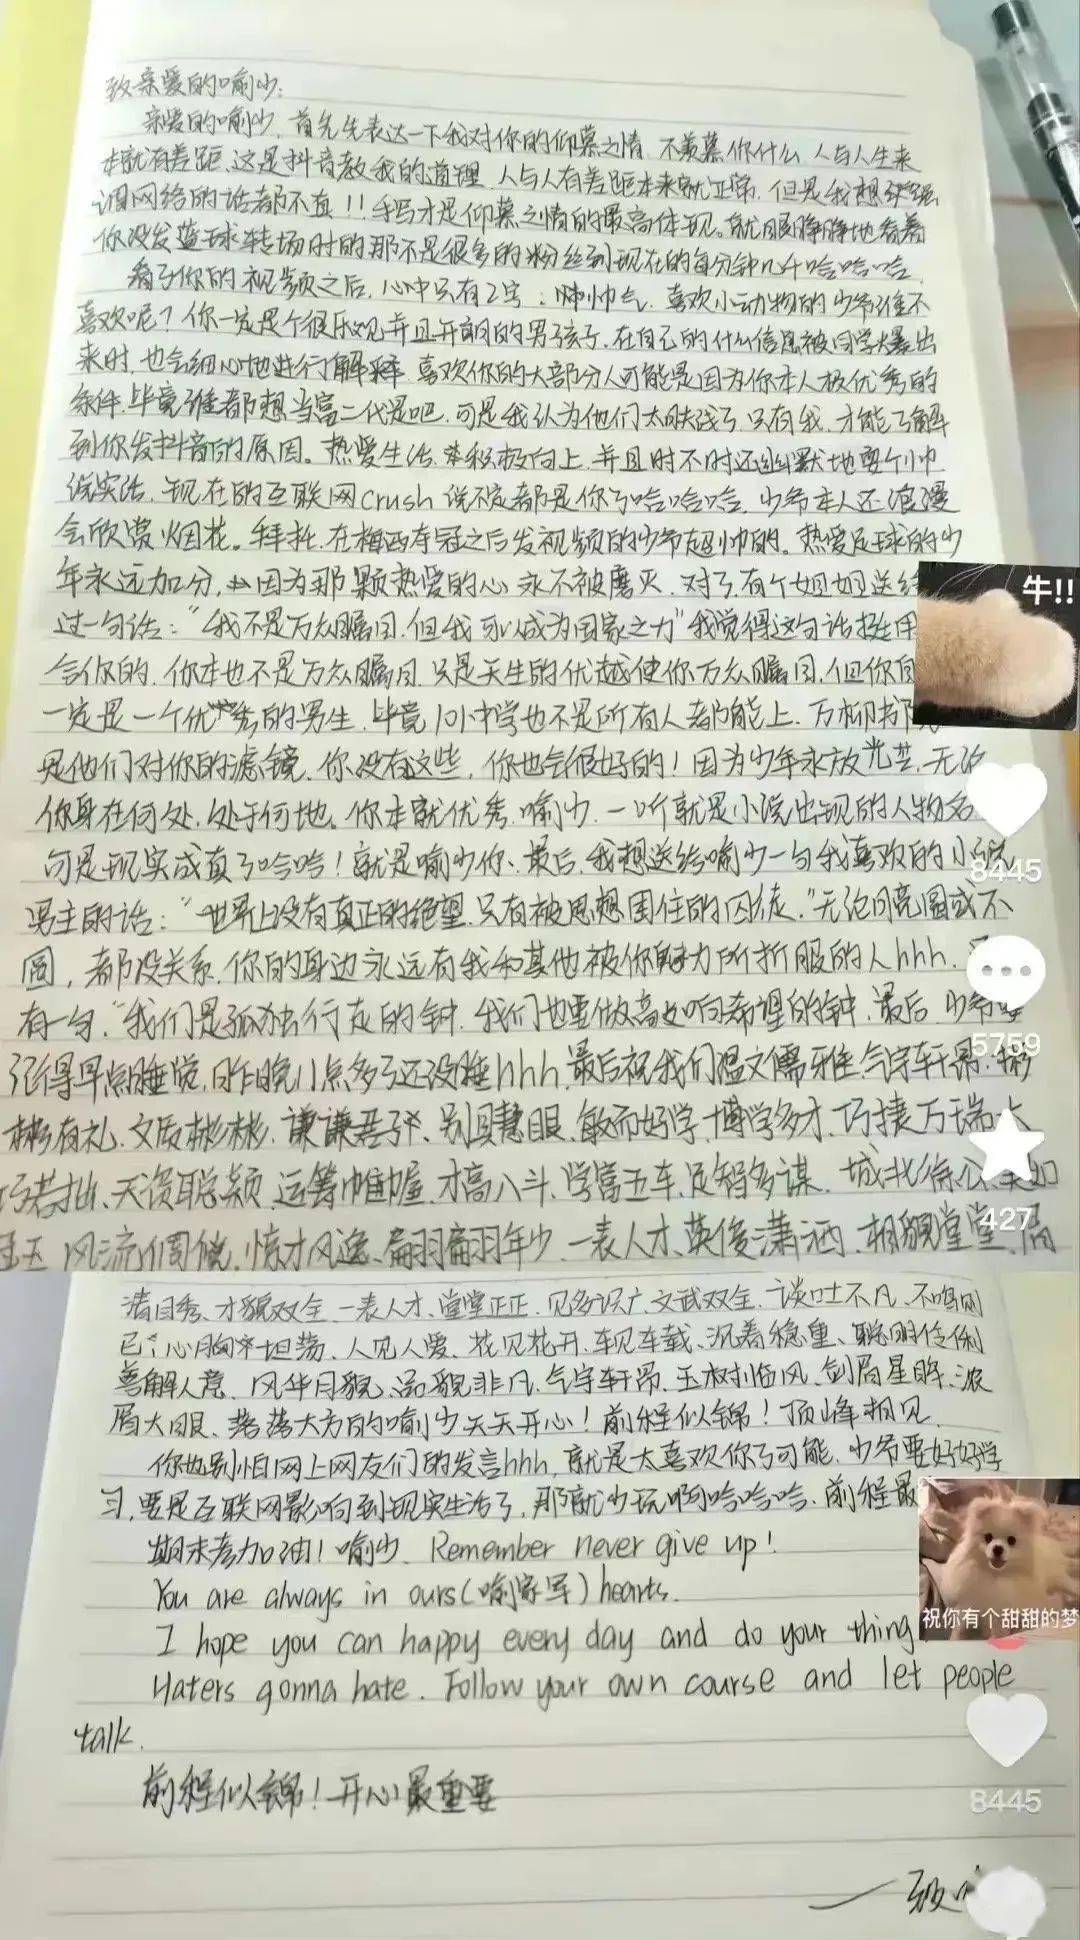 致亲爱的喻少:
亲爱的喻少,首先先表达一下我对你的仰慕之情,不羡慕你什么,人与人生来
本就有差距,这是抖音教我的道理,人与人有差距本来就正常,但是我想
网络的话都不真!!手写才是仰慕之情的最高体现。就眼睁睁地看着
你没发篮球转场时的那不是很多的粉丝到现在的每分钟几千哈哈哈
看了你的视频之后,心中只有2字:帅气,喜欢小动物的少爷谁不
喜欢呢?你一定是个很乐观并且开朗的男孩子,在自己的什么信息被同学爆出
来时,也会细心地进行解释,喜欢你的大部分人可能是因为你本人极优秀的
条件,毕竟谁都想当富二代是吧,可是我认为他们太肤浅了,只有我,才能了解
到你发抖音的原因。热爱生活,积极向上,并且时不时还幽默地耍个小巾
说实话,现在的互联网crush说不定都是你了哈哈哈,少爷本人还浪漫
会欣赏烟花。拜托,在梅西夺冠之后发视频的少爷超帅的。热爱足球的少
年永远加分,因为那颗热爱的心永不被磨灭,对了,有个姐姐送给
过一句话:“我不是万众瞩目,但我可以成为国家之力”我觉得这句话挺
合你的,你本也不是万众瞩目,只是天生的优越使你万众瞩目,但你
一定是一个优秀的男生,毕竟101中学也不是所有人都能上,万柳书院
是他们对你的滤镜,你没有这些,你也会很好的!因为少年永放光芒,无论
你身在何处,处于何地。你本就优秀,喻少,一听就是小说出现的人物名
可是现实成真了哈哈!就是喻少你、最后,我想送给喻少一句我喜欢的小说
男主的话:“世界上没有真正的绝望,只有被思想困住的囚徒,”无论月亮圆或不
圆,都没关系,你的身边永远有我和其他被你魅力所折服的人hhh,
有一句,“我们是孤独行走的钟,我们也要做高如响希望的钟,最后,少爷
记得早点睡觉,昨晚11点多了还没睡hhh,最后祝我们温文儒雅、气宇轩昂、彬
彬有礼、文质彬彬、谦谦君子、别具慧眼、敏而好学、博学多才、巧捷万端、大
巧若拙、天资聪颖、运筹帷幄、才高八斗、学富五车、足智多谋、城北徐公、美如
冠玉、风流倜傥、惊才风逸、翩翩年少、一表人才、英俊潇洒、相貌堂堂、眉
清目秀、才貌双全、一表人才、堂堂正正、见多识广、文武双全、谈吐不凡、不鸣则
已、心胸坦荡、人见人爱、花见花开、车见车载、沉着稳重、聪明伶俐
善解人意、风华月貌、品貌非凡、气宇轩昂、玉树临风、剑眉星眸、浓
眉大眼、落落大方的喻少天天开心!前程似锦!顶峰相见
你也别怕网上网友们的发言hhh,就是太喜欢你了可能,少爷要好好学
习,要是互联网影响到现实生活了,那就少玩啊哈哈哈,前程最
期末考加油!喻少、Remember never give up!
You are always in ours(喻家军)hearts.
I hope you can happy every day and do your thing
Haters gonna hate. Follow your own course and let people
talk.
前程似锦!开心最重要
一致
牛!!
8445
5759
427
祝你有个甜甜的梦
8445